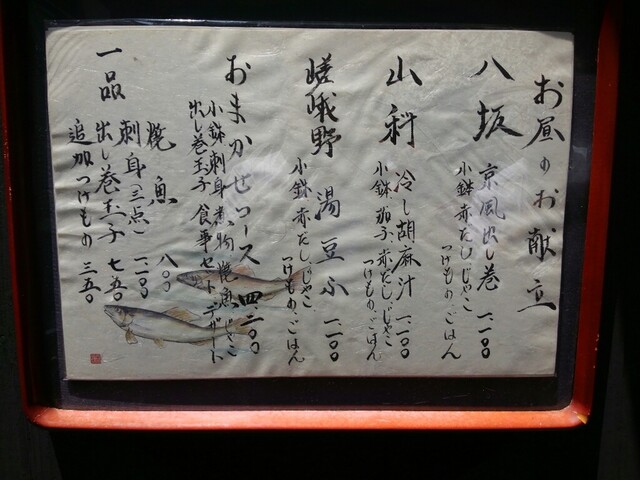 お昼のお献立
八坂 京風出し巻 一、一〇〇
小鉢 赤だし、じゃこ
つけもの、ごはん
山科 冷し胡麻汁 一、一〇〇
小鉢 茄子、赤だし、じゃこ
つけもの、ごはん
嵯峨野 湯豆ふ 一、一〇〇
小鉢 赤だし、じゃこ
つけもの、ごはん
おまかせコース 四、二〇〇
小鉢 刺身 煮物 焼魚 じゃこ
出し巻玉子 食事セット、デザート
一品 焼魚 八〇〇
刺身(三点) 一、二〇〇
出し巻玉子 七五〇
追加つけもの 三五〇